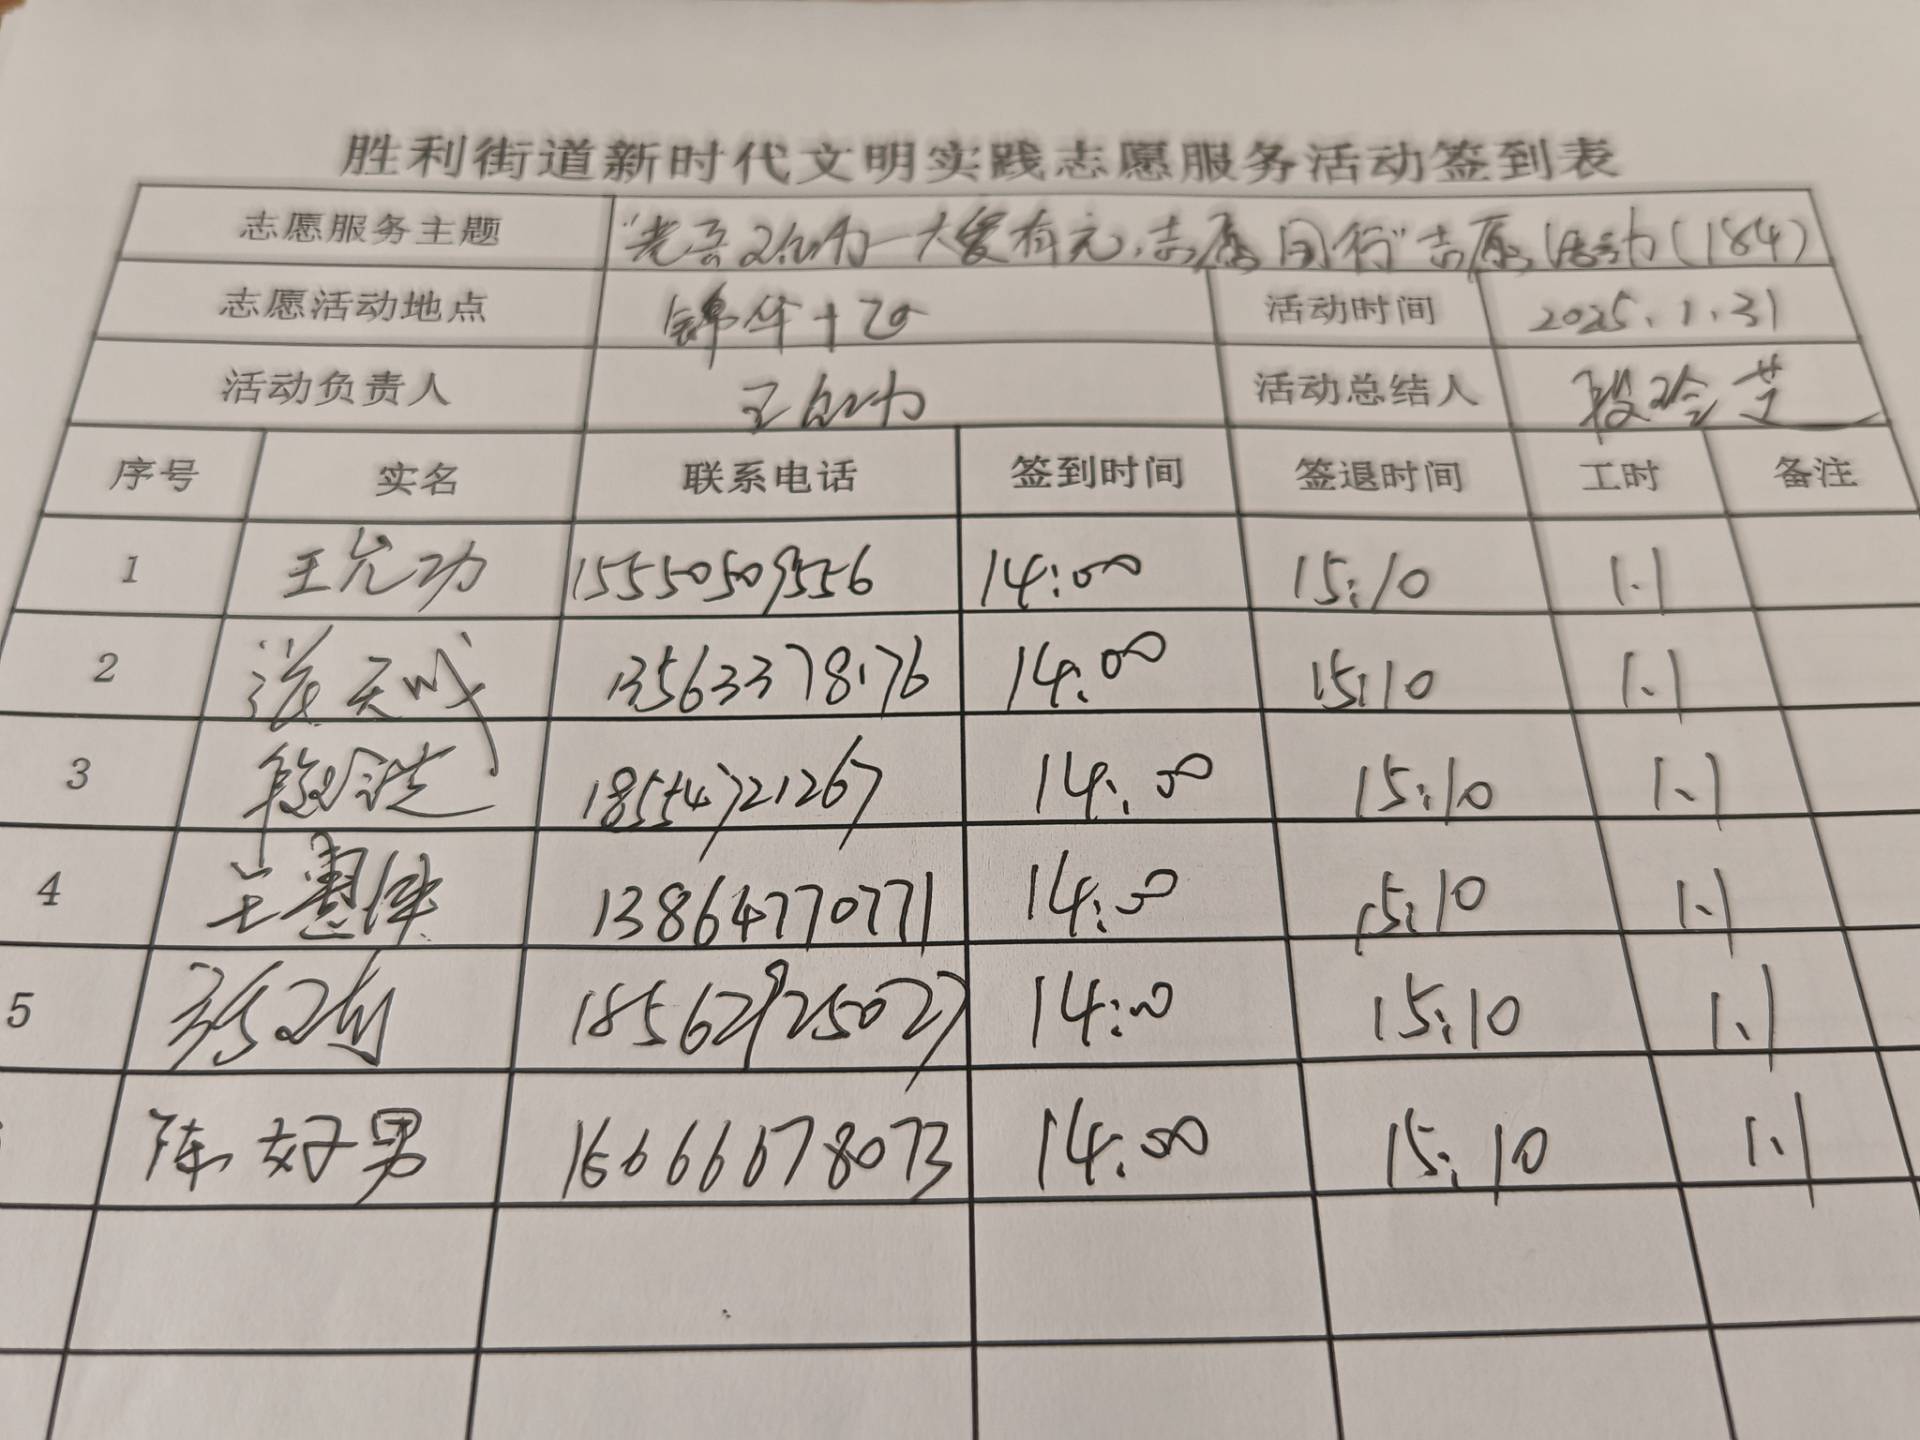 胜利街道新时代文明实践志愿服务活动签到表
志愿服务主题 大爱有 志愿同行"志愿活动(184)
志愿活动地点 锦华十 活动时间 2025.1.31
活动负责人 王 活动总结人 段 芝
序号 实名 联系电话 签到时间 签退时间 工时 备注
1 王允功 15550509556 14:00 15:10 1.1
2 张天成 13563378176 14:00 15:10 1.1
3 18554721267 14:00 15:10 1.1
4 13864770771 14:00 15:10 1.1
5 18562925027 14:00 15:10 1.1
陈好男 16666678073 14:00 15:10 1.1